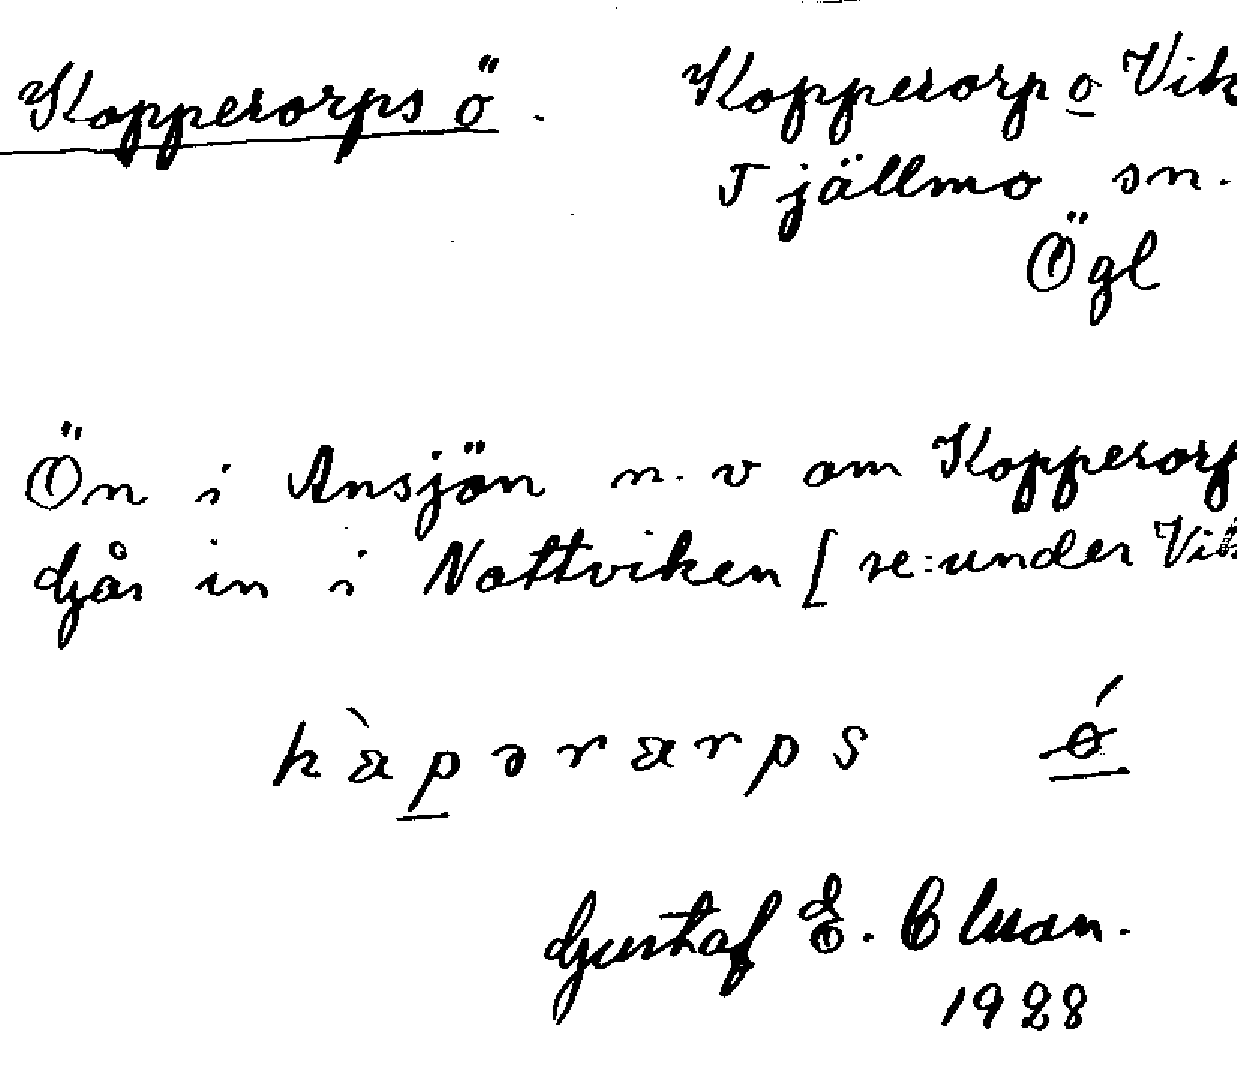 Kopperorps ö. Kopperorp o Vik
Tjällmo sn.
Ögl
Ön i Ansjön n. v om Kopperorp
Går in i Nottviken [ se: under Vik
Gustaf E.
1928